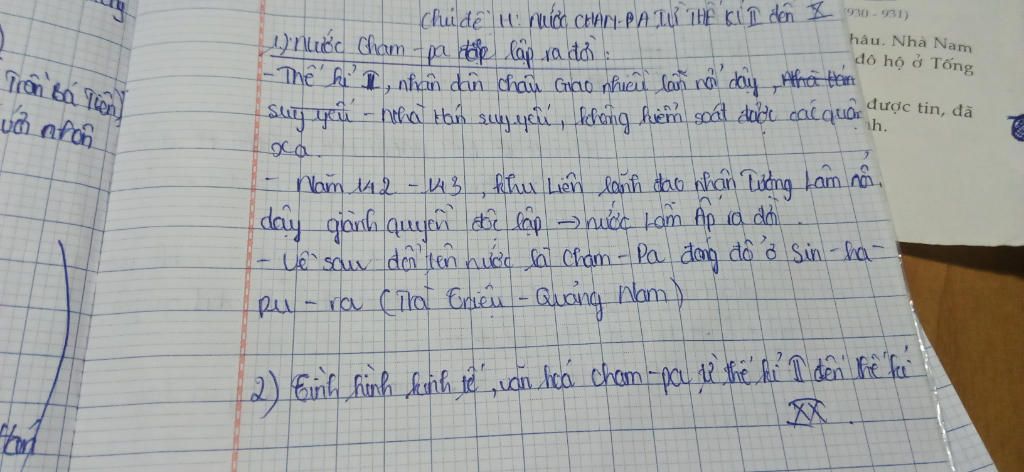 Chủ đề 11: nước CHAM-PA TỪ THẾ KỈ II đến X
1) nước Cham-pa độc lập ra đời:
- Thế kỉ II, nhân dân châu Giao nhiều lần nổi dậy, nhà Hán
suy yếu - nhà Hán suy yếu, không kiểm soát được các quận
xa.
- Năm 192 - 193, Khu Liên lãnh đạo nhân Tượng Lâm nổi
dậy giành quyền độc lập → nước Lâm Ấp ra đời.
- Về sau đổi tên nước là Cham-Pa đóng đô ở Sin-ha-
pu-ra (Trà Triệu - Quảng Nam)
2) tình hình kinh tế, văn hoá cham-pa từ thế kỉ II đến thế kỉ
XX.
Trần Bá
với nhân
930 - 931)
hâu. Nhà Nam
đô hộ ở Tống
được tin, đã
h.